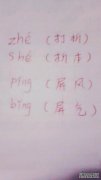 zhé (打折)
Shé (折本)
píng (屏风)
bǐng (屏气)